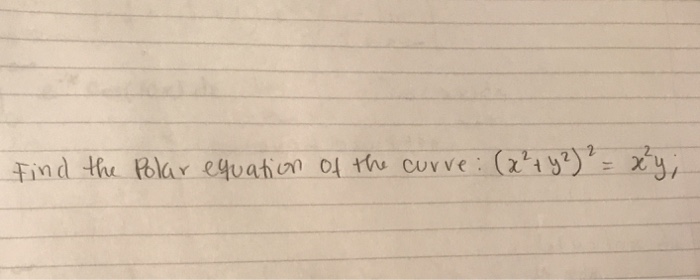 Find the Polar equation of the curve: (x²+y²)² = x²y;